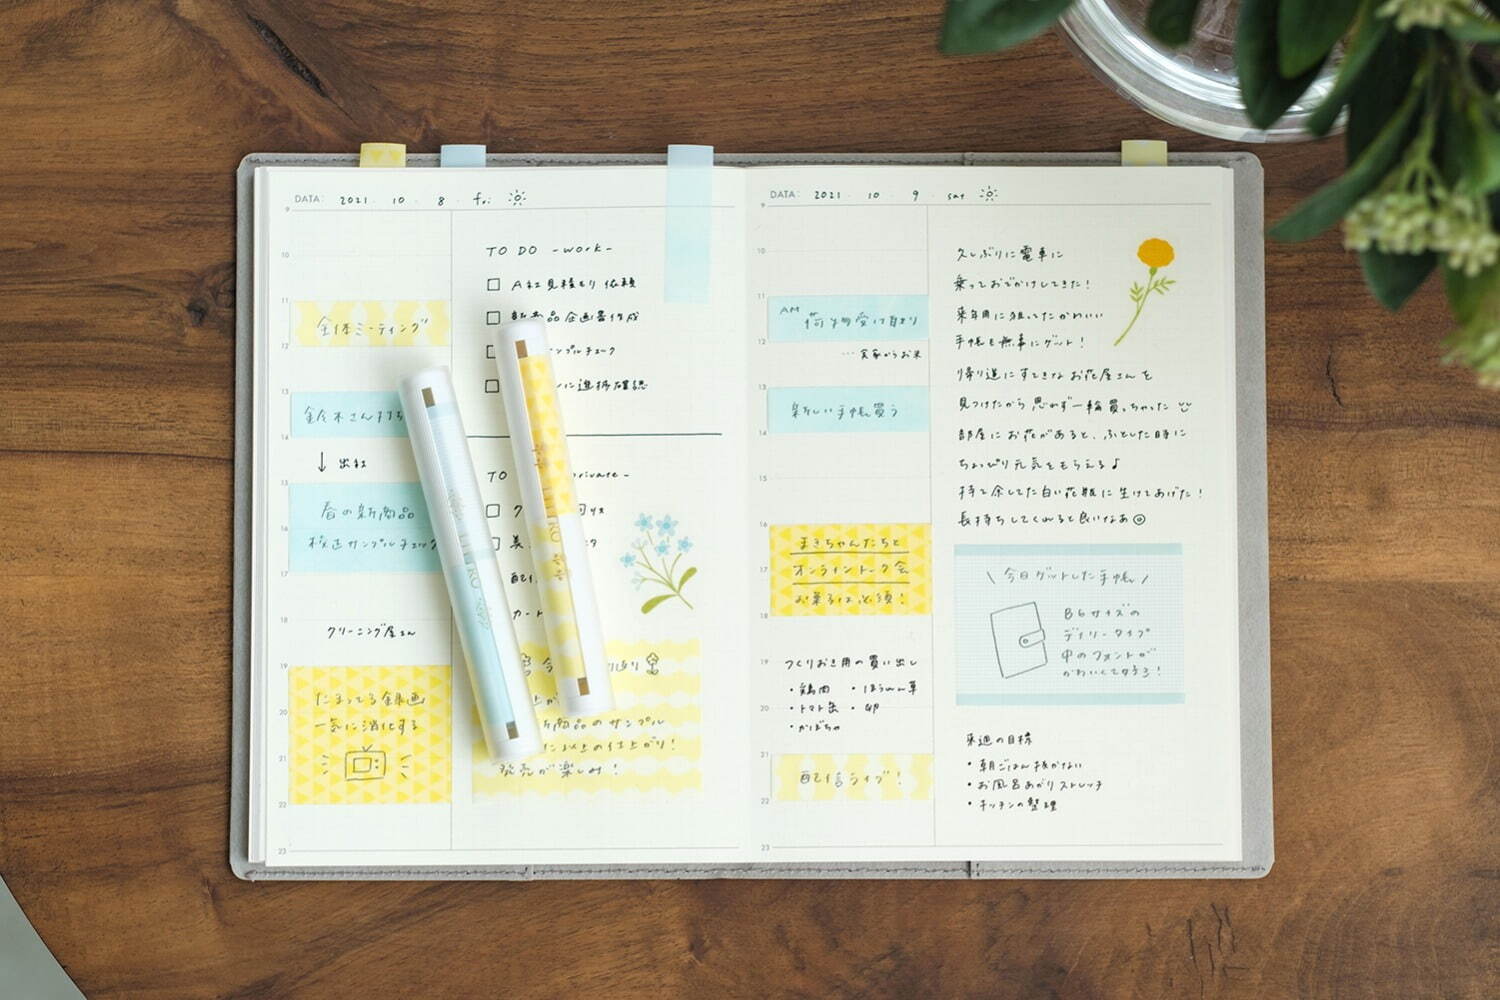 DATA: 2021 10 8 fri
9
10
11
12
13
14
15
16
17
18
19
20
21
22
23
全体ミーティング
鈴木さん打ち
↓ 出社
春の新商品
校正サンプルチェック
クリーニング屋さん
たまってる録画
一気に消化する
TO DO -work-
□ A社見積もり依頼
□ 新商品企画書作成
□ ンプルチェック
□ に進捗確認
TO private-
□ ク リス
□ 美
配信
カート
今 り
上が
新商品のサンプル
以上の仕上がり!
発売が楽しみ!
DATA: 2021 10 9 sat
9
10
11
12
13
14
15
16
17
18
19
20
21
22
23
AM 荷物受け取り
…実家からお米
新しい手帳買う
まきちゃんたちと
オンライントーク会
お菓子は必須!
つくりおき用の買い出し
・鶏肉 ・ほうれん草
・トマト缶 ・卵
・かぼちゃ
配信ライブ!
久しぶりに電車に
乗っておでかけしてきた!
来年用に狙ってたかわいい
手帳も無事にゲット!
帰り道にすてきなお花屋さんを
見つけたから思わず一輪買っちゃった
部屋にお花があると、ふとした時に
ちょっぴり元気をもらえる♪
持て余してた白い花瓶に生けてあげた!
長持ちしてくれると良いなあ
\ 今日ゲットした手帳 /
B6サイズの
デイリータイプ
中のフォントが
かわいくて好き!
来週の目標
・朝ごはん抜かない
・お風呂あがりストレッチ
・キッチンの整理